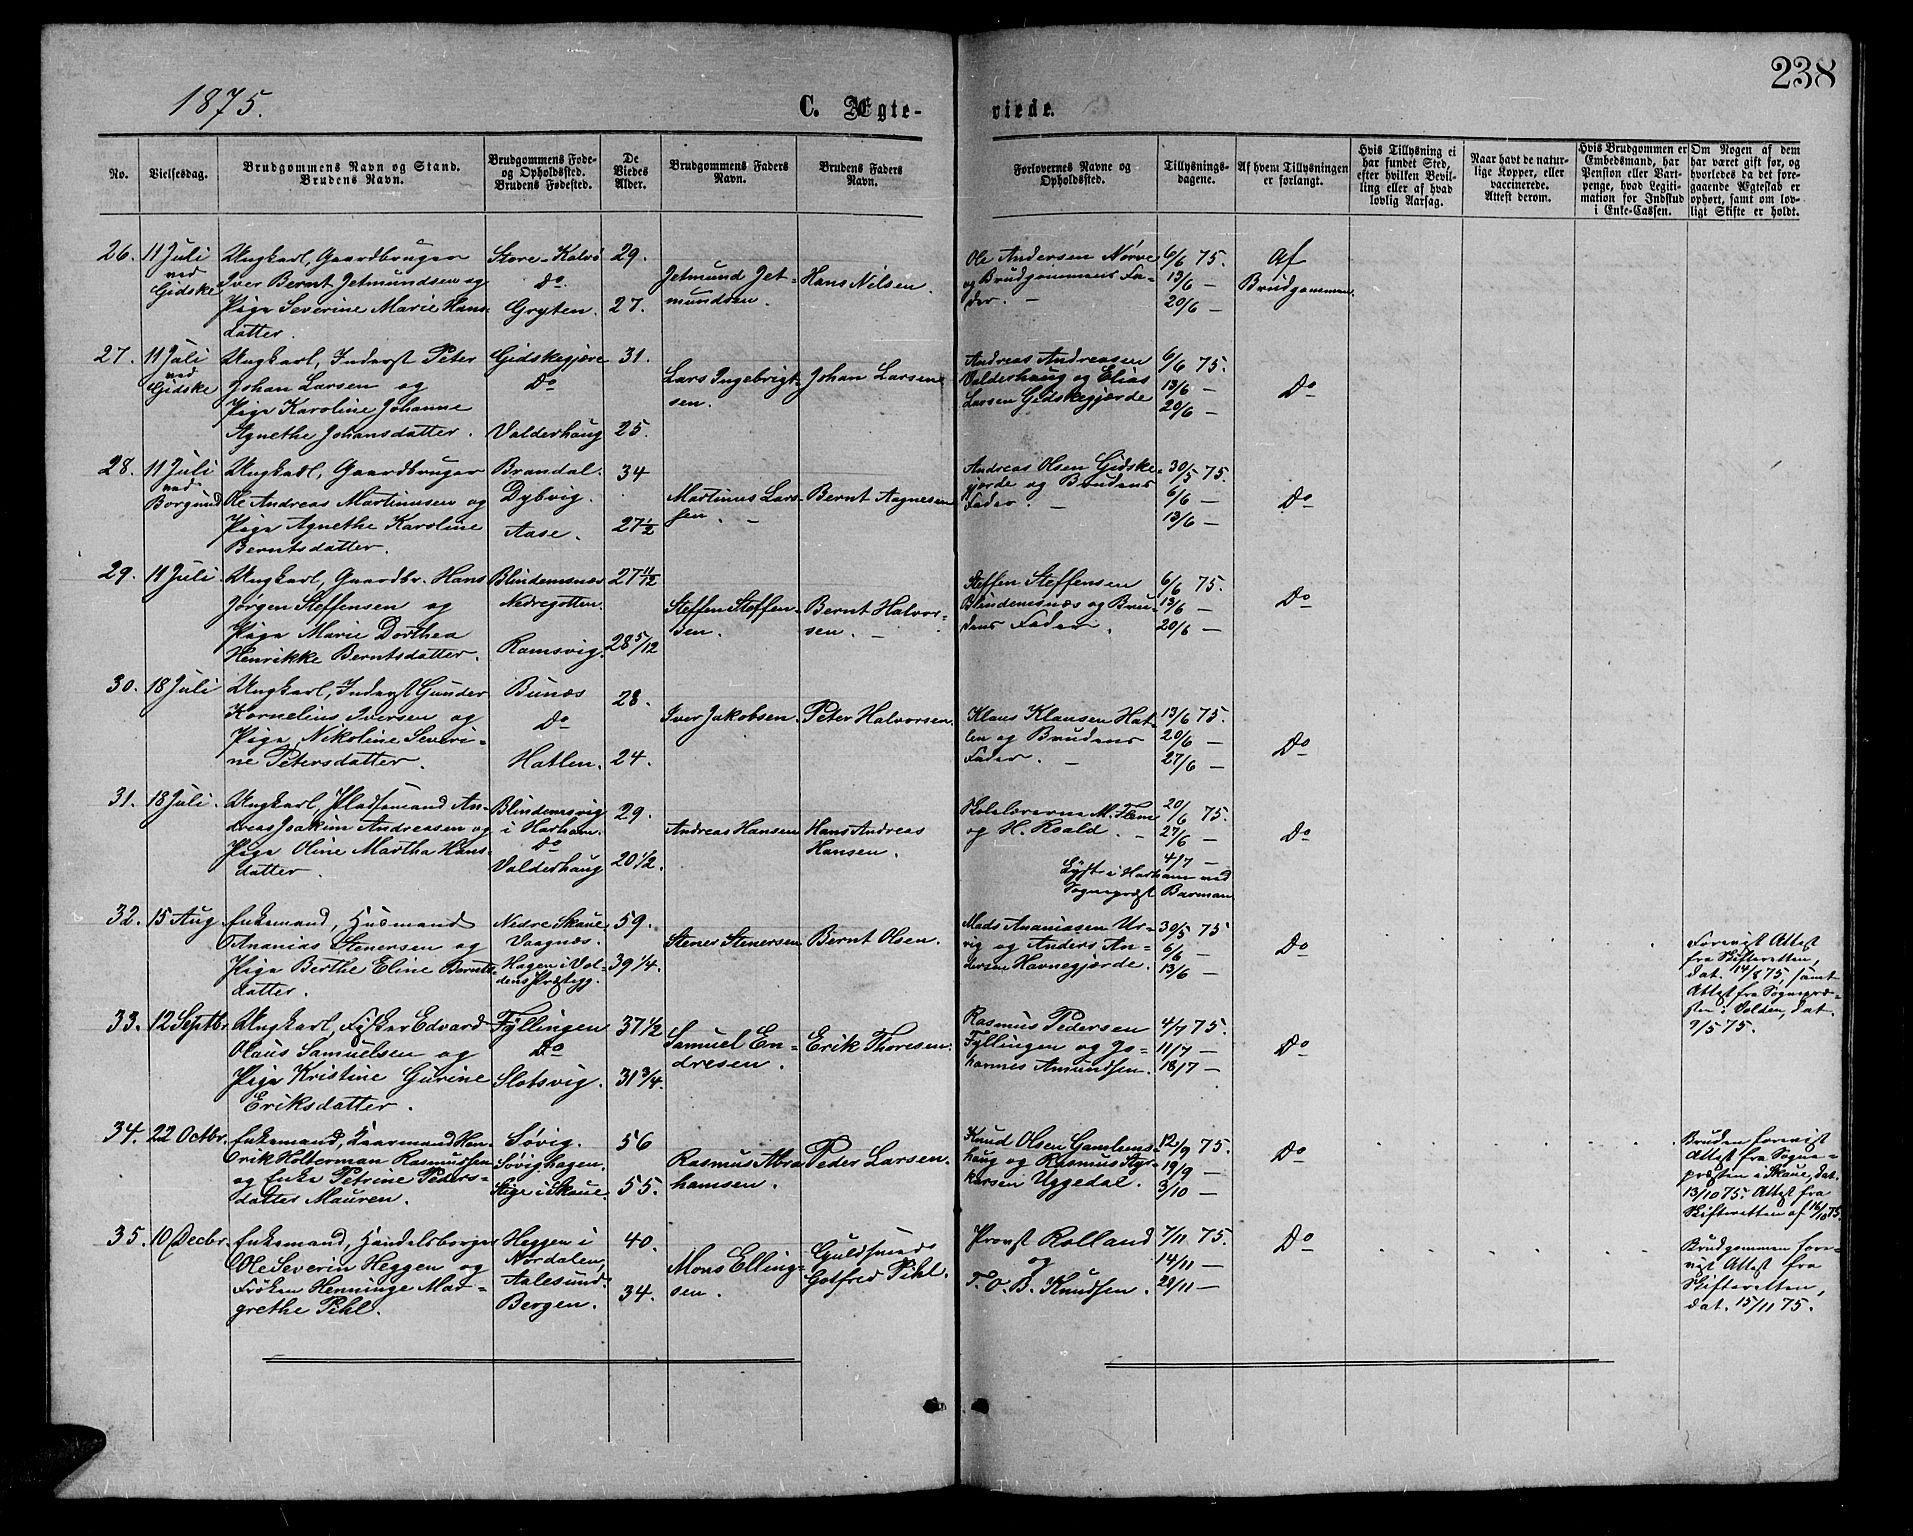 238
1875.
C. Ægte-
viede.
No.
Vielsesdag.
Brudgommens Navn og Stand.
Brudens Navn.
Brudgommens Føde-
og Opholdssted.
Brudens Fødested.
De
Viedes
Alder.
Brudgommens Faders
Navn.
Brudens Faders
Navn.
Forlovernes Navne og
Opholdssted.
Tillysnings-
dagene.
Af hvem Tillysningen
er forlangt.
Hvis Tillysning ei
har fundet Sted,
efter hvilken Bevil-
ling eller af hvad
lovlig Aarsag.
Naar havt de natur-
lige Kopper, eller
vaccinerede.
Attest derom.
Hvis Brudgommen er
Embedsmand, har
Pension eller Vart-
penge, hvad Legiti-
mation for Indskud
i Enke-Cassen.
Om Nogen af dem
har været gift før, og
hvorledes da det fore-
gaaende Ægteskab er
ophørt, samt om lov-
ligt Skifte er holdt.
26.
11 Juli
ved
Gidske
Ungkarl, Gaardbruger
Iver Bernt Jetmundsen og
Pige Severine Marie Hans-
datter.
Store-Kalvø
Do
Gryten.
29.
27.
Jetmund Jet-
mundsen.
Hans Nilsen.
Ole Andersen Nørve
og Brudgommens Fa-
der. —
6/6 75.
13/6 —
20/6 —
Af
Brudgommen.
27.
11 Juli
ved
Gidske
Ungkarl, Inderst Peter
Johan Larsen og
Pige Karoline Johanne
Agnethe Johansdatter.
Gidskegjøre
Do
Valderhaug
31.
25.
Lars Ingebrigt-
sen.
Johan Larsen
Andreas Andreasen
Valderhaug og Elias
Larsen Gidskegjerde
6/6 75.
13/6 —
20/6 —
Do
28.
11 Juli
ved
Borgund
Ungkarl, Gaardbruger
Ole Andreas Martinusen og
Pige Agnethe Karoline
Berntsdatter.
Brandal.
Dybvig.
Aase.
34
27 1/2
Martinus Lars-
sen. —
Bernt Aagnesen
Andreas Olsen Gidske-
gjerde og Brudens
Fader. —
30/5 75.
6/6 —
13/6 —
Do
29.
11 Juli.
Ungkarl, Gaardbr. Hans
Jørgen Steffensen og
Pige Marie Dorthea
Henrikke Berntsdatter.
Blindemsnæs
Nedregotten.
Ramsvig.
27 11/12
28 5/12
Steffen Steffen-
sen.
Bernt Halvor-
sen. —
Steffen Steffensen
Blindemsnæs og Bru-
dens Fader.
6/6 75.
13/6 —
20/6 —
Do
30.
18 Juli
Ungkarl, Inderst Gunder
Kornelius Iversen og
Pige Nikoline Severi-
ne Petersdatter.
Bunæs
Do
Hatlen.
28.
24.
Iver Jakobsen.
Peter Halvorsen.
Klaus Klausen Hat-
len og Brudens
Fader. —
13/6 75.
20/6 —
27/6 —
Do
31.
18 Juli.
Ungkarl, Pladsemand An-
dreas Joakim Andreasen og
Pige Oline Martha Hans-
datter.
Blindemsvig
i Harham.
Do
Valderhaug
29.
20 1/2.
Andreas Hansen
Hans Andreas
Hansen.
Skolelærerne M. Flem
og H. Roald. —
20/6 75.
27/6 —
4/7 —
Lyst i Harham ved
Sogneprest Barman
Do
32.
15 Aug.
Enkemand, Husmand
Ananias Stenersen og
Pige Berthe Eline Bernts-
datter.
Nedre Skaue
Vaagnæs.
Hagen i Vol-
dens Præstegj.
59.
39 1/4.
Stener Stenersen
Bernt Olsen.
Mads Ananiassen Ur-
vig og Anders An-
dersen Havnegjerde.
30/5 75
6/6 —
13/6
Do
Forevist Attest
fra Skifteretten,
dat. 14/8 75, samt
Attest fra Sognepræ-
sten i Volden, dat.
9/5 75.
33.
12 Septbr.
Ungkarl, Fisker Edvard
Olaus Samuelsen og
Pige Kristine Gurine
Eriksdatter.
Fyllingen
Do
Slotsvig.
37 1/2
31 3/4.
Samuel En-
dresen.
Erik Thoresen.
Rasmus Pedersen
Fyllingen og Jo-
hannes Amundsen.
4/7 75.
11/7 —
18/7 —
Do
34.
22 Octbr.
Enkemand, Kaarmand Hen-
drik Holterman Rasmussen
og Enke Petrine Peders-
datter Mauren.
Søvig.
Søvighagen.
Stige i Skaue
56
55.
Rasmus Abra-
hamsen.
Peder Larsen.
Knud Olsen Gamlems-
haug og Rasmus Styr-
karsen Uggedal.
12/9 75.
19/9 —
3/10 —
Do
Bruden forevist
Attest fra Sogne-
presten i Skaue, dat.
13/10 75. Attest fra
Skifteretten af 16/10 75.
35.
10 Decbr.
Enkemand, Handelsborger
Ole Severin Heggen og
Frøken Henninge Mar-
grethe Pihl.
Heggen i
Nordalen,
Aalesund.
Bergen.
40.
34.
Mons Elling-
sen.
Guldsmed
Gotfred Pihl.
Provst Rolland
og
T. O. B. Knudsen.
7/11 75.
14/11 —
21/11 —
Do
Brudgommen fore-
vist Attest fra
Skifteretten,
dat. 15/11 75.